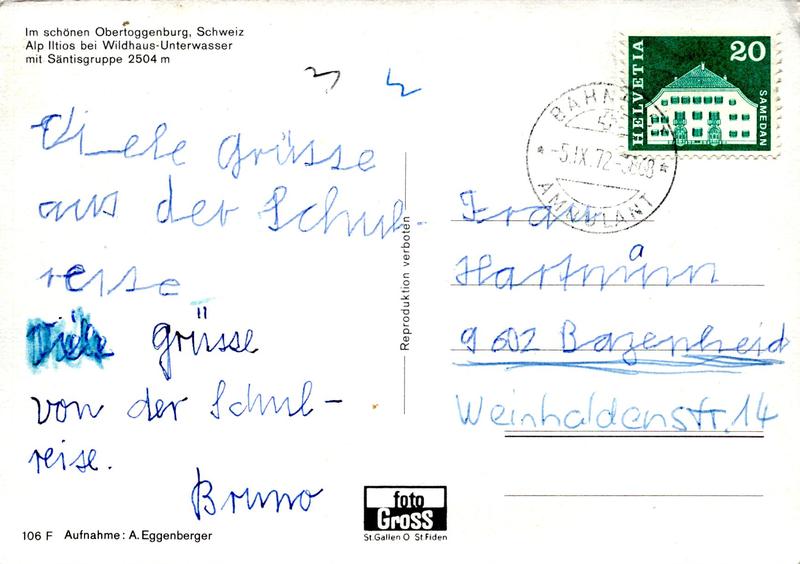 Im schönen Obertoggenburg, Schweiz
Alp Iltios bei Wildhaus-Unterwasser
mit Säntisgruppe 2504 m
Viele Grüsse
aus der Schul-
reise
Viele Grüsse
von der Schul-
reise.
Bruno
106 F Aufnahme: A. Eggenberger
Reproduktion verboten
foto
Gross
St.Gallen O St Fiden
HELVETIA
20
SAMEDAN
-5.IX.72-
AMBULANT
Frau
Hartmann
9602 Bazenheid
Weinhaldenstr. 14